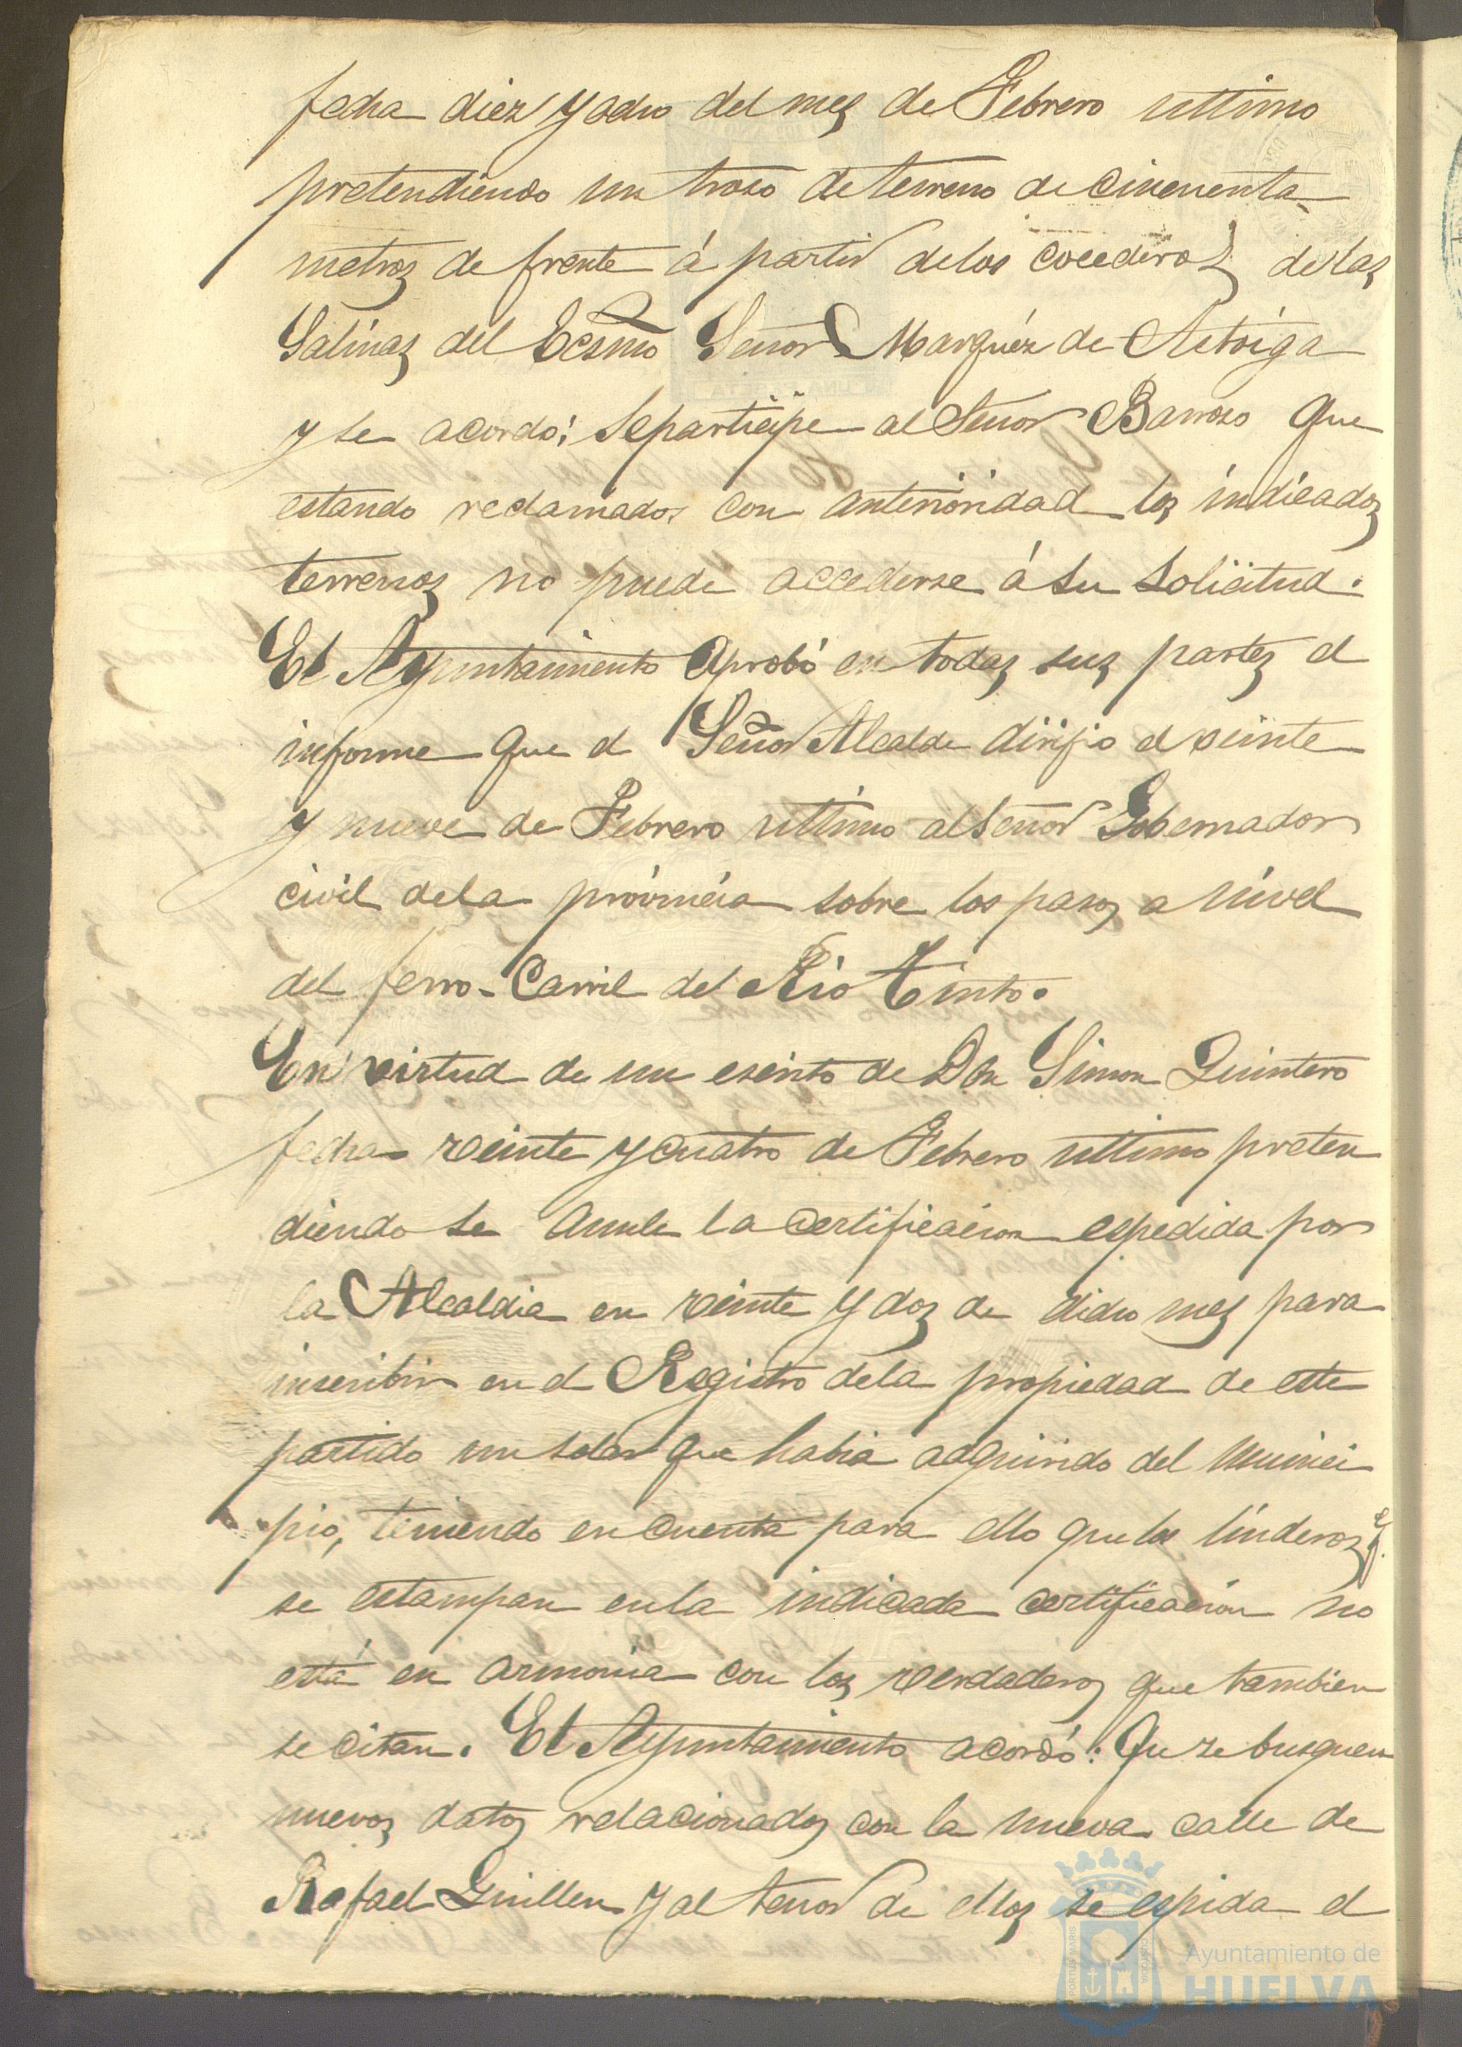 fecha diez y ocho del mes de Febrero ultimo
pretendiendo un troso de terreno de cincuenta
metros de frente á partir de los cocederos de las
Salinas del Ecsmo Señor Marquéz de Astorga
y se acordó; se participe al Señor Barroso que
estando reclamados con anterioridad los indicados
terrenos no puede accederse á su solicitud.
El Ayuntamiento aprobó en todas sus partes el
informe que el Señor Alcalde dirijio el veinte
y nueve de Febrero ultimo al Señor Gobernador
civil de la provincia sobre los pasos a nivel
del ferro-Carril del Rio Tinto.
En virtud de un escrito de Don Simon Quintero
fecha veinte y cuatro de Febrero ultimo preten
diendo se anule la certificacion espedida por
la Alcaldia en veinte y dos de dicho mes para
inscribir en el Registro de la propiedad de este
partido un solar que habia adquirido del Munici
pio, teniendo en cuenta para ello que los linderos q.e
se estampan en la indicada certificación no
está en armonia con los verdaderos que tambien
se citan. El Ayuntamiento acordó: Que se busquen
nuevos datos relacionados con la nueva calle de
Rafael Guillen y al tenor de ellos se espida el
Ayuntamiento de
HUELVA